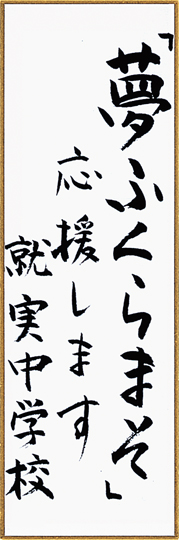 「夢ふくらまそ」
応援します
就実中学校